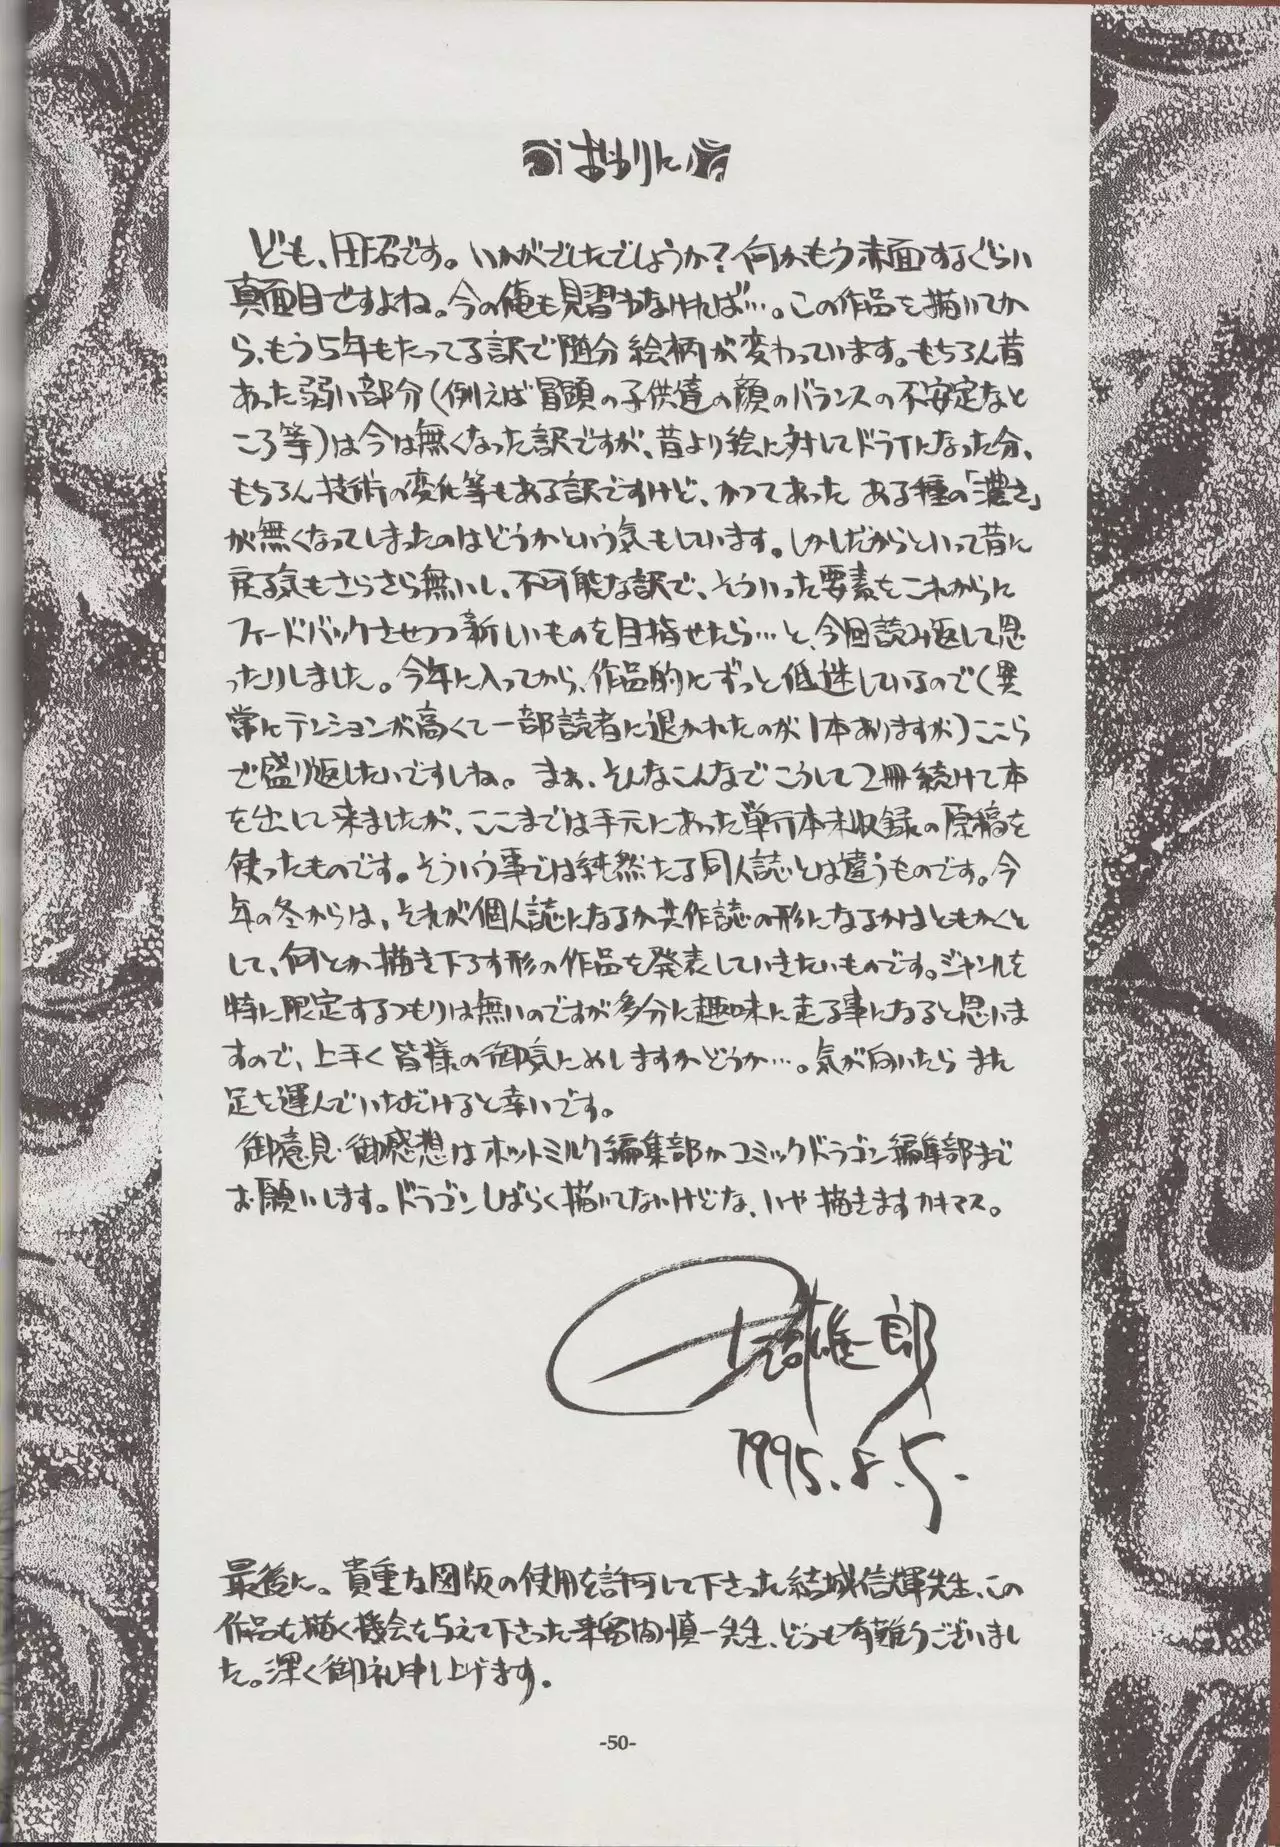 おわりに
ども、田沼です。いかがでしたでしょうか?何かもう赤面するぐらい
真面目ですよね。今の俺も見習わなければ…。この作品を描いてか
ら、もう5年もたってる訳で随分絵柄が変わっています。もちろん昔
あった弱い部分(例えば冒頭の子供達の顔のバランスの不安定なと
ころ等)は今は無くなった訳ですが、昔より絵に対してドライになった分、
もちろん技術の変化等もある訳ですけど、かつてあった ある種の「濃さ」
が無くなってしまったのはどうかという気もしています。しかしだからといって昔に
戻る気もさらさら無いし、不可能な訳で、そういった要素をこれからに
フィードバックさせつつ新しいものを目指せたら…と、今回読み返して思
ったりしました。今年に入ってから、作品的にずっと低迷しているので(異
常にテンションが高くて一部読者に退かれたのが1本ありますが)ここら
で盛り返したいですしね。まぁ、そんなこんなでこうして2冊続けて本
を出して来ましたが、ここまでは手元にあった単行本未収録の原稿を
使ったものです。そういう事では純然たる同人誌とは違うものです。今
年の冬からは、それが個人誌になるか共作誌の形になるかはともかくと
して、何とか描き下ろす形の作品を発表していきたいものです。ジャンルを
特に限定するつもりは無いのですが多分に趣味に走る事になると思いま
すので、上手く皆様の御気にめしますかどうか…。気が向いたら また
足を運んでいただけると幸いです。
御意見・御感想はホットミルク編集部かコミックドラゴン編集部まで
お願いします。ドラゴンしばらく描いてないけどな、いや描きますカキマス。
雄一郎
1995.8.5.
最後に。貴重な図版の使用を許可して下さった結城信輝先生、この
作品を描く機会を与えて下さった来留間慎一先生、どうも有難うございまし
た。深く御礼申し上げます。
-50-